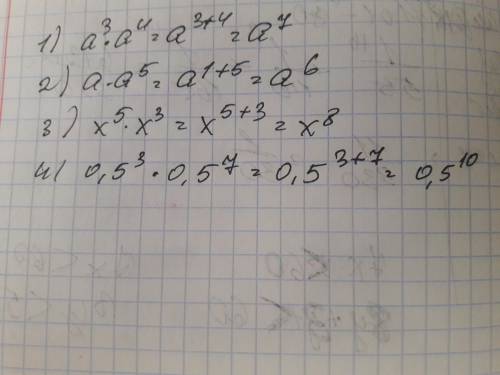 1) a³·a⁴=a³⁺⁴=a⁷
2) a·a⁵=a¹⁺⁵=a⁶
3) x⁵·x³=x⁵⁺³=x⁸
4) 0,5³·0,5⁷=0,5³⁺⁷=0,5¹⁰